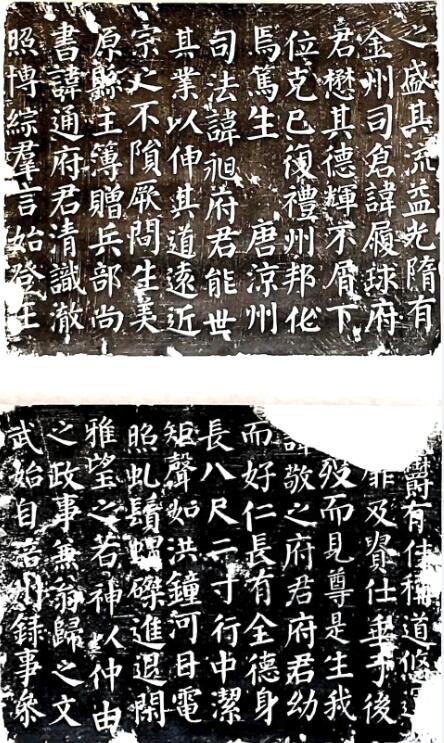 之盛其流益光隋有
金州司倉諱履球府
君懋其德輝不屑下
位克己復禮州邦化
焉篤生 唐涼州
司法諱昶府君能世
其業以伸其道遠近
宗之不隕厥問生美
原縣主簿贈兵部尚
書諱通府君清識澈
照博綜羣言始登王
有佳稱道悠
靡及貴仕垂于後
歿而見尊是生我
諱敬之府君府君幼
而好仁長有全德身
長八尺二寸行中潔
矩聲如洪鐘河目電
照虬鬚蝟磔進退閑
雅望之若神以仲由
之政事兼翁歸之文
武始自涪州錄事參